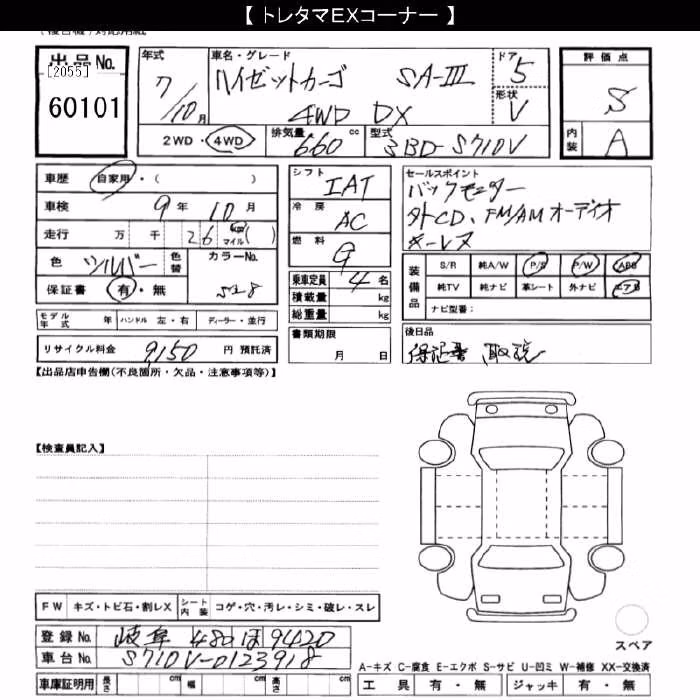 【 トレタマEXコーナー 】
出品 No.
[2055]
60101
年式
7/10月
車名・グレード
ハイゼットカーゴ SA-III
4WD DX
ドア
5
形状
V
評価点
S
内装
A
2WD・4WD
排気量
660 cc
型式
3BD-S710V
車歴 自家用・( )
車検 9年 10月
走行 万 千 26 km マイル ( )
色 シルバー 色替
カラーNo.
S28
保証書 有・無
モデル年式 年 ハンドル 左・右 ディーラー・並行
リサイクル料金 9,150 円 預託済
シフト
IAT
冷房
AC
燃料
G
乗車定員 4 名
積載量 kg
総重量 kg
書類期限
月 日
セールスポイント
バックモニター
外CD、FM/AMオーディオ
キーレス
装備品
S/R 純A/W P/S P/W ABS
純TV 純ナビ 革シート 外ナビ エアB
ナビ型番:
後日品
保証書 取説
【出品店申告欄(不良箇所・欠品・注意事項等)】
【検査員記入】
FW キズ・トビ石・割レX シート内装 コゲ・穴・汚レ・シミ・破レ・スレ
登録 No. 岐阜 480 ほ 9420
車台 No. S710V-0123918
車庫証明用 長さ cm 幅 cm 高さ cm
スペア
A-キズ C-腐食 E-エクボ S-サビ U-凹ミ W-補修 XX-交換済
工具 有・無 ジャッキ 有・無